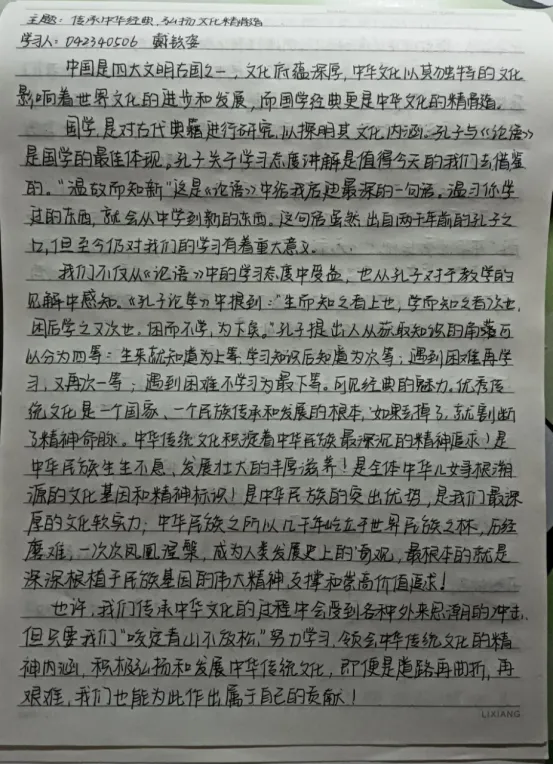 主题：传承中华经典，弘扬文化精髓
学习人：042340506 戴
中国是四大文明古国之一，文化底蕴深厚，中华文化以其独特的文化
影响着世界文化的进步和发展，而国学经典更是中华文化的精髓。
国学是对古代典籍进行研究，以探明其文化内涵。孔子与《论语》
是国学的最佳体现，孔子关于学习态度讲解是值得今天的我们去借鉴
的。“温故而知新”这是《论语》中给我启迪最深的一句话。温习你学
过的东西，就会从中学到新的东西。这句话虽然出自两千年前的孔子之
口，但至今仍对我们的学习有着重大意义。
我们不仅从《论语》中的学习态度中受益，也从孔子对于教学的
见解中感知。《孔子论学》中提到：“生而知之者上也，学而知之者次也，
困后学之又次也，困而不学，为下矣。”孔子提出人从获取知识的角落可
以分为四等：生来就知道为上等；学习知识后知道为次等；遇到困难再学
习，又再次一等；遇到困难不学习为最下等。可见经典的魅力。优秀传
统文化是一个国家、一个民族传承和发展的根本，如果丢掉了，就割断
了精神命脉。中华传统文化积淀着中华民族最深沉的精神追求！是
中华民族生生不息、发展壮大的丰厚滋养！是全体中华儿女寻根溯
源的文化基因和精神标识！是中华民族的突出优势，是我们最深
厚的文化软实力；中华民族之所以几千年屹立于世界民族之林，历经
磨难，一次次凤凰涅槃，成为人类发展史上的奇观，最根本的就是
深深根植于民族基因的伟大精神支撑和崇高价值追求！
也许，我们传承中华文化的过程中会受到各种外来思潮的冲击，
但只要我们“咬定青山不放松，”努力学习，领会中华传统文化的精
神内涵，积极弘扬和发展中华传统文化，即便是道路再曲折，再
艰难，我们也能为此作出属于自己的贡献！
LIXIANG